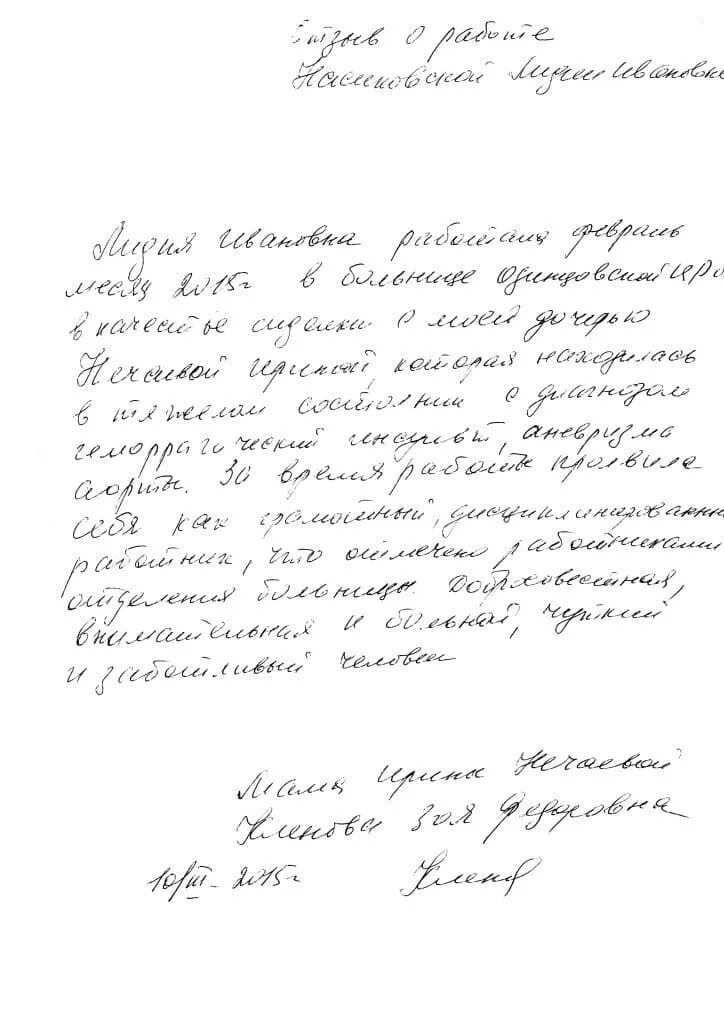 Отзыв о работе
Насиковской Лидии Ивановны
Лидия Ивановна работала февраль
месяц 2015г в больнице Одинцовской ЦРБ
в качестве сиделки с моей дочерью
Нечаевой Ириной, которая находилась
в тяжелом состоянии с диагнозом
геморрагический инсульт, аневризма
аорты. За время работы проявила
себя как грамотный, дисциплинированный
работник, что отмечено работниками
отделения больницы. Добросовестная,
внимательная к больной, чуткий
и заботливый человек
Мама Ирины Нечаевой
Кленова Зоя Федоровна
10/III-2015г Клен